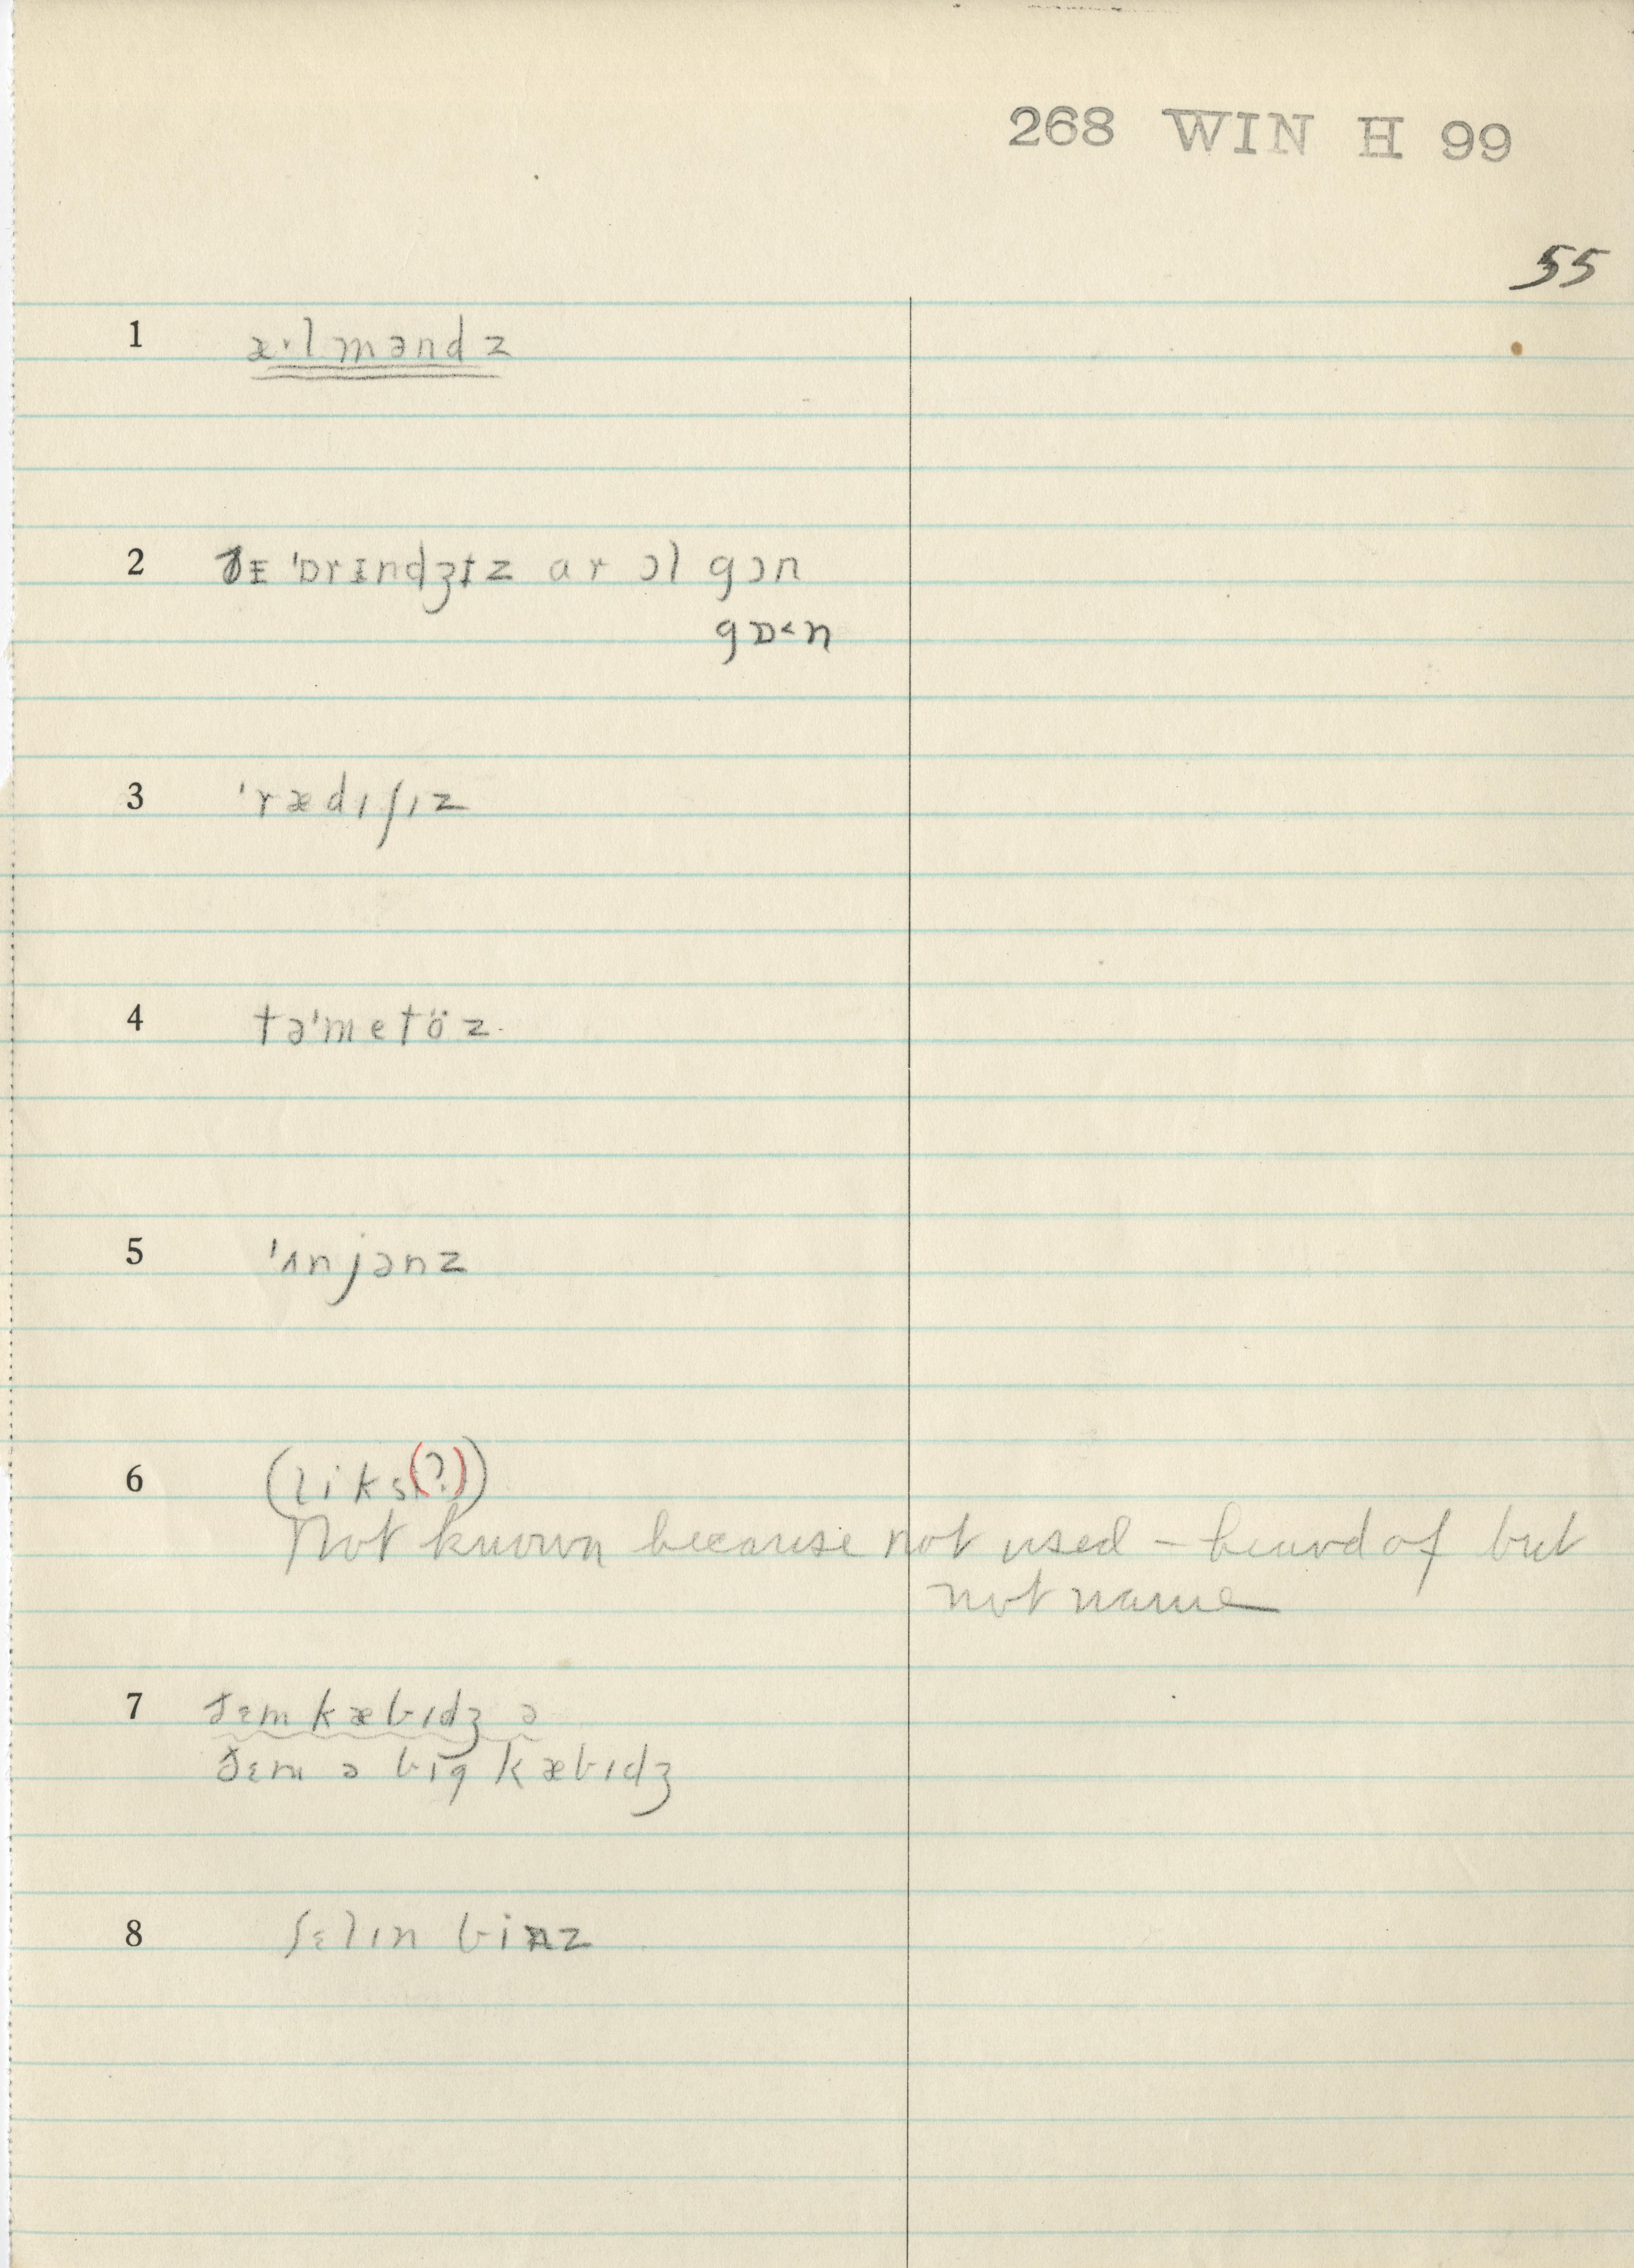 268 WIN H 99
55
1 æ·lməndz
2 ðɪ 'ɒrɪndʒɪz ar ɔl gɔn
gɒ˂n
3 'rædɪʃɪz
4 tə'metöz
5 'ʌnjənz
6 (liks(?))
Not known because not used – heard of but
not name
7 ðɛm kæbɪdʒ ə
ðɛm ə big kæbɪdʒ
8 ʃɛlɪn binz